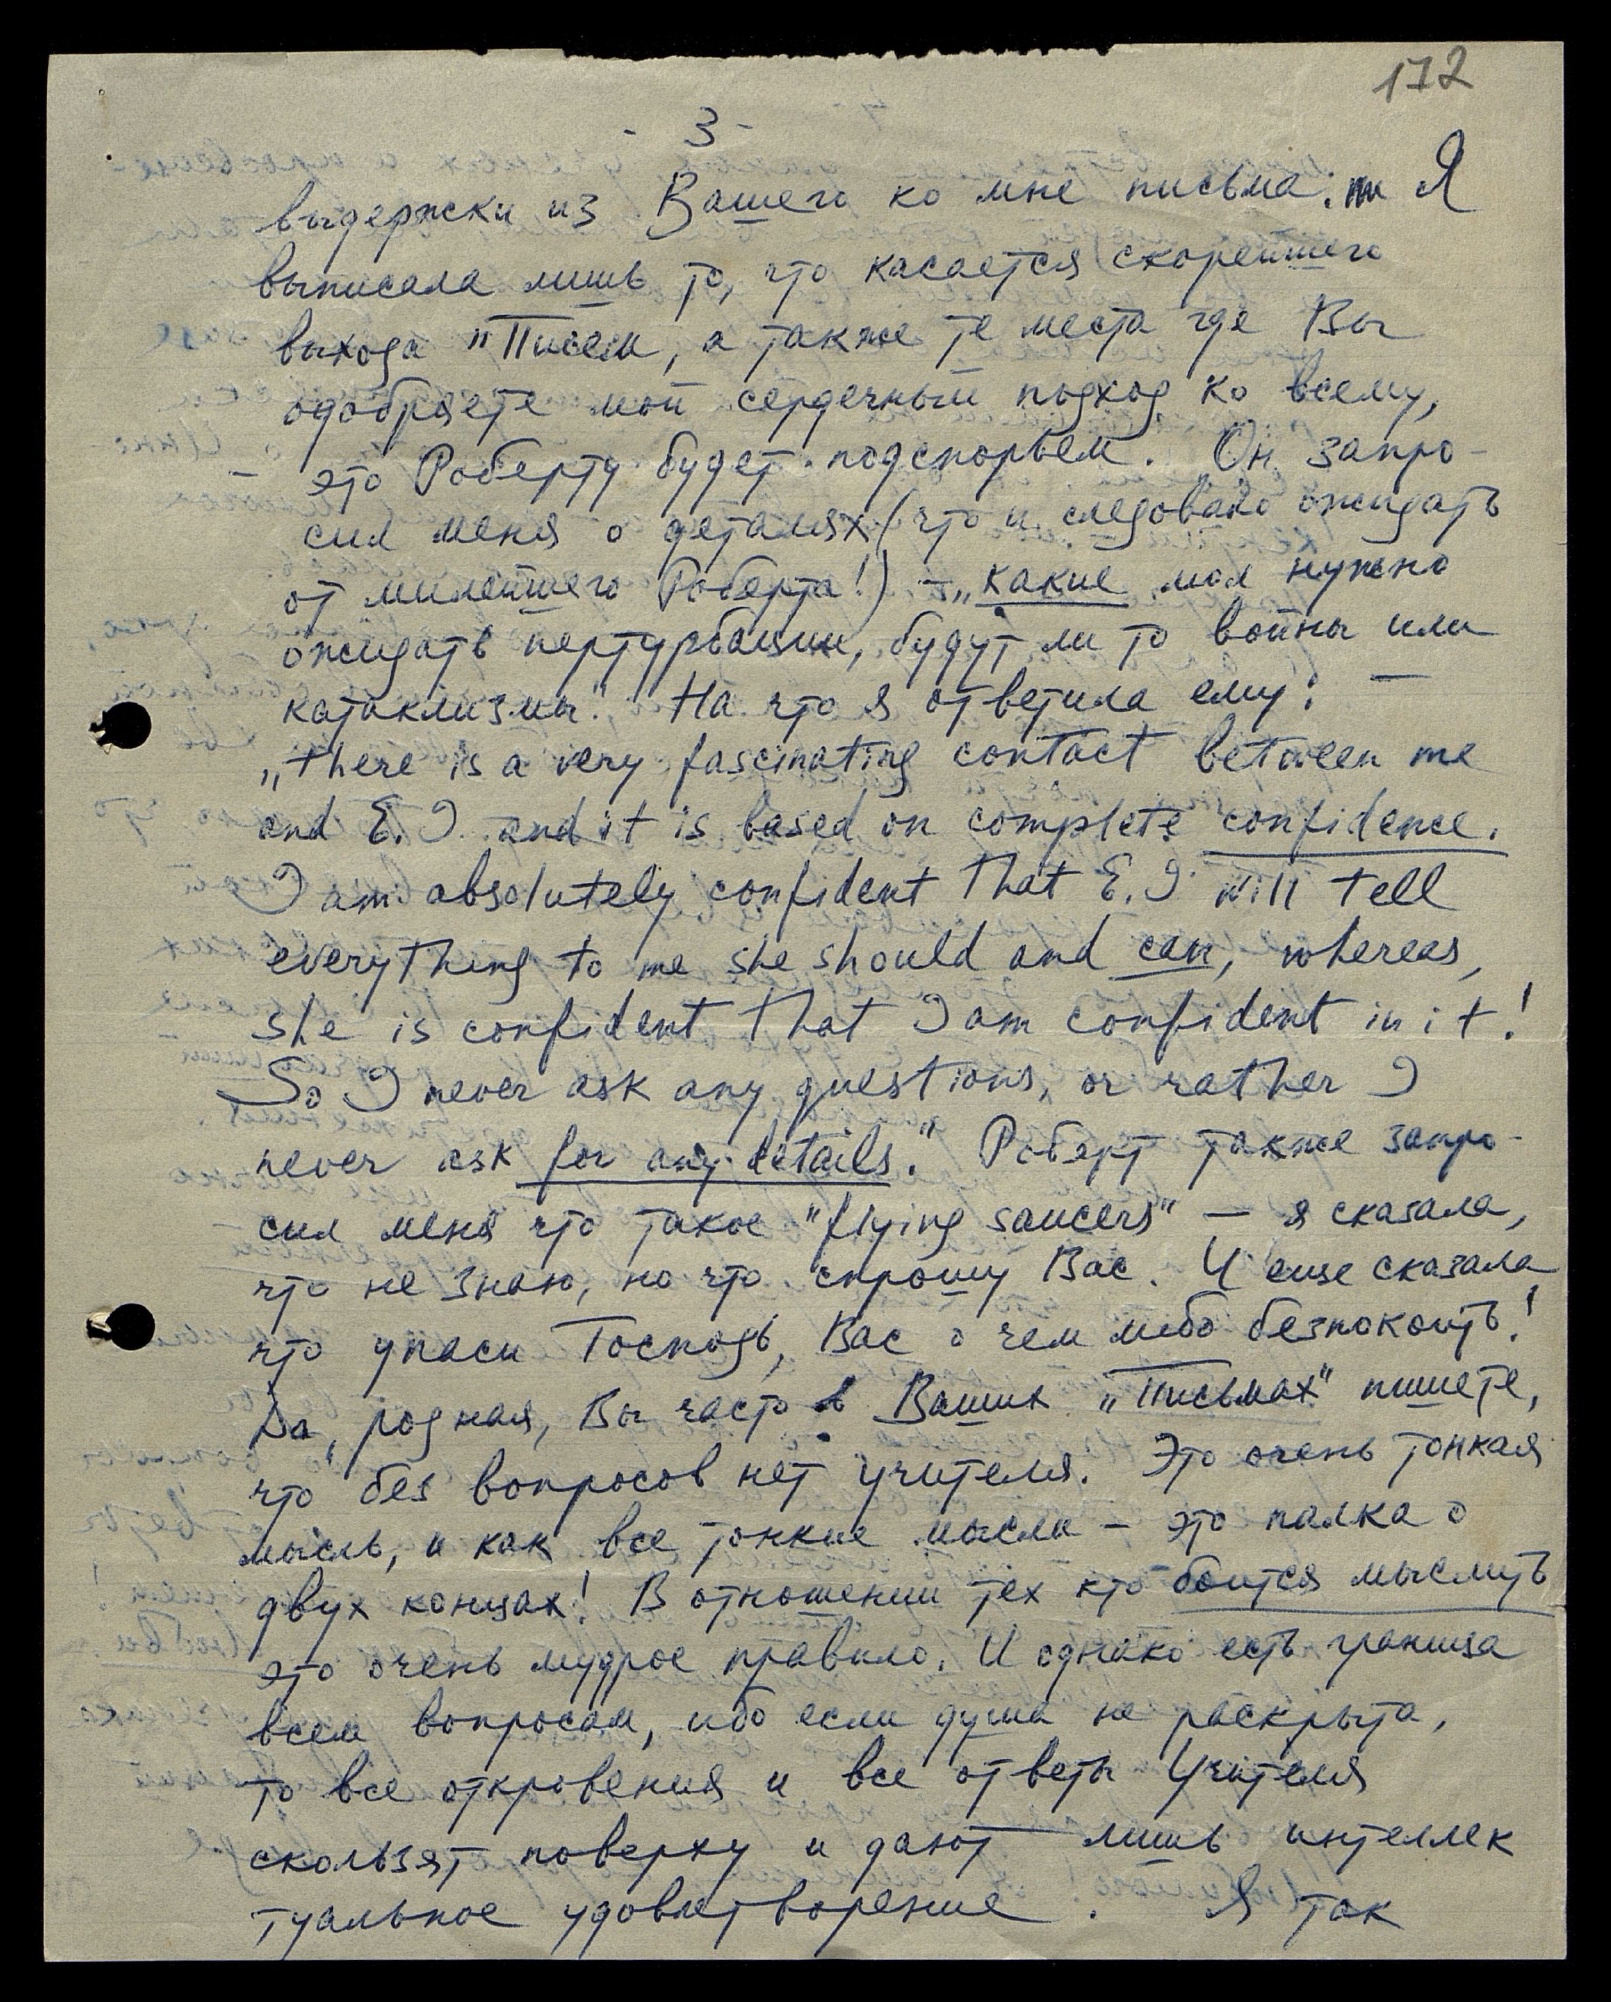 172
- 3 -
выдержки из Вашего ко мне письма. Я
выписала лишь то, что касается скорейшего
выхода "Писем, а также те места где Вы
одобряете мой сердечный подход ко всему,
- это Роберту будет подспорьем. Он запро-
сил меня о деталях (что и следовало ожидать
от милейшего Роберта!) - „какие мол нужно
ожидать пертурбации, будут ли то войны или
катаклизмы." На что я ответила ему: —
„there is a very fascinating contact between me
and E. I. and it is based on complete confidence.
I am absolutely confident that E. I. will tell
everything to me she should and can, whereas,
she is confident that I am confident in it!
So I never ask any questions, or rather I
never ask for any details." Роберт также запро-
сил меня что такое "flying saucers" — я сказала,
что не знаю, но что спрошу Вас. И еще сказала
что упаси Господь, Вас о чем либо безпокоить!
Да, родная, Вы часто в Ваших „Письмах" пишете,
что "без вопросов нет учителя. Это очень тонкая
мысль, и как все тонкие мысли - это палка о
двух концах! В отношении тех кто боится мыслить
это очень мудрое правило. И однако есть граница
всем вопросам, ибо если душа не раскрыта,
то все откровения и все ответы Учителя
скользят поверху и дают лишь интеллек
туальное удовлетворение. Я так